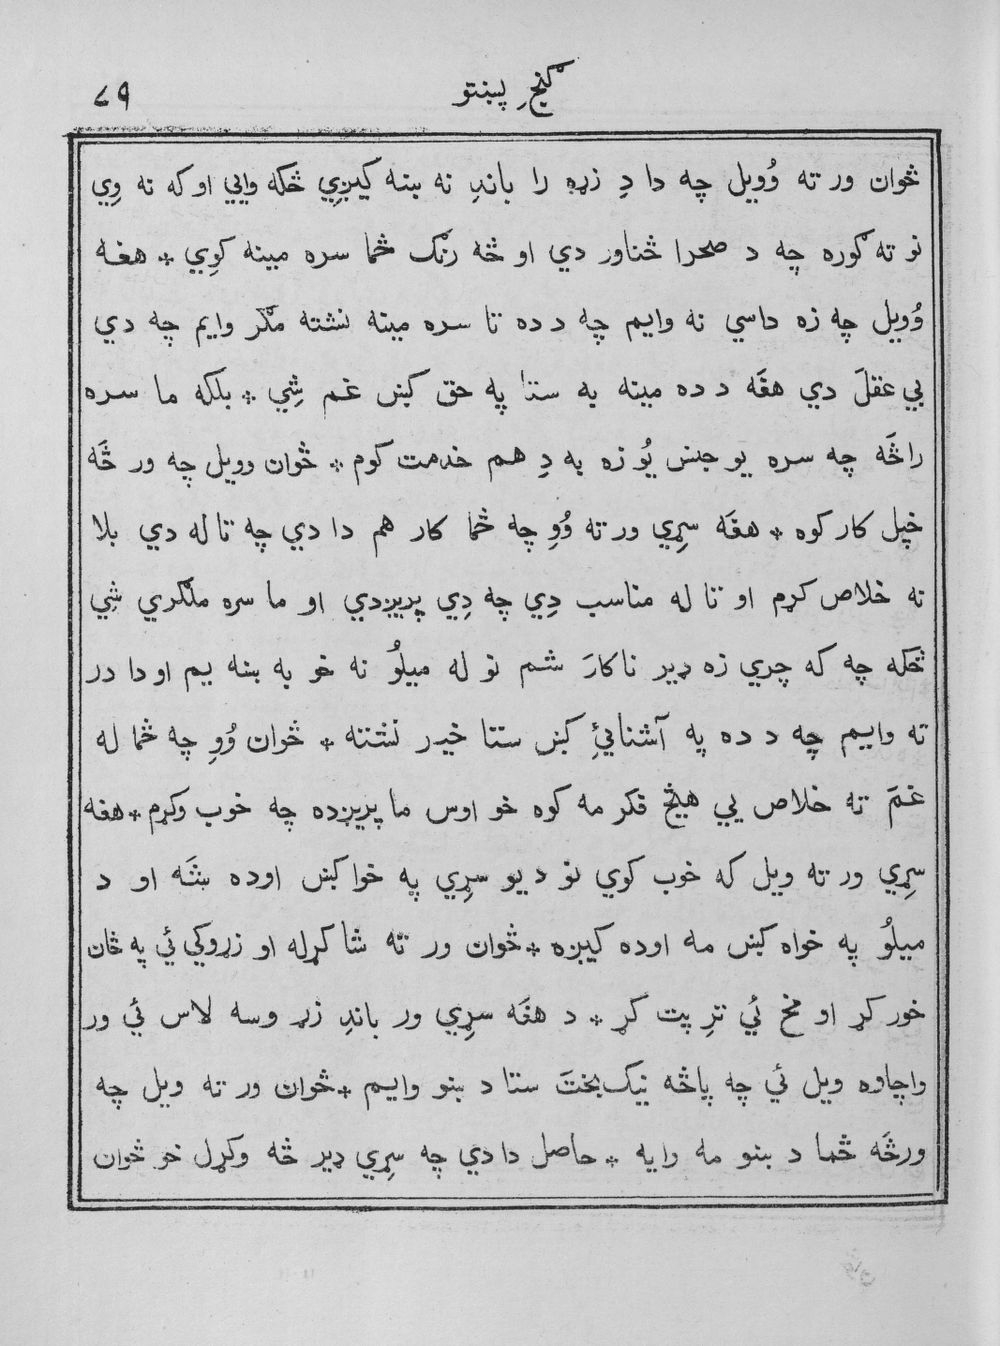 گنجِ پښتو
٧٩
ځوان ور ته وُويل چه دا دِ زړه را باندِ نه ښه کيږِي ځکه وايي او که نه وِي
نو ته ګوره چه د صحرا ځناور دي او څه رنګ ځما سره مينه کوِي * هغه
وُويل چه زه داسي نه وايم چه د ده تا سره مينه نشته مګر وايم چه دي
بي عقلَ دي هغَه د ده مينه به ستا په حق کښ غم شِي * بلکه ما سره
راځَه چه سره يو جنس يُو زه به دِ هم خدمت کوم * ځوان وويل چه ور ځَه
خپل کار کوه * هغَه سړِي ور ته وُوِ چه ځما کار هم دا دي چه تا له دي بلا
نه خلاص کړم او تا له مناسب دِي چه دِي پريږدي او ما سره ملګري شِي
ځکه چه که چري زه ډير ناکارَ شم نو له ميلُو نه خو به ښه يم او دا در
ته وايم چه د ده په آشنائيِ کښ ستا خير نشته * ځوان وُوِ چه ځما له
غمَ نه خلاص يي هيڅ فکر مه کوه خو اوس ما پريږده چه خوب وکړم * هغه
سړِي ور ته ويل که خوب کوي نو د يو سړِي په خوا کښ اوده شَه او د
ميلُو په خواه کښ مه اوده کيږه * ځوان ور ته شا کړله او زړوکي ئي په ځان
خور کړ او مخ ئي ترِ پت کړ * د هغَه سړِي ور باندِ زړ وسه لاس ئي ور
واچاوه ويل ئي چه پاڅه نيک بختَ ستا د ښو وايم * ځوان ور ته ويل چه
ورځَه ځما د ښو مه رايه * حاصل دا دي چه سړِي ډير څه وکړل خو ځوان